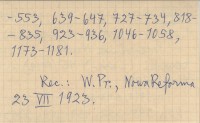 -553, 639-647, 727-734, 818-
-835, 923-936, 1046-1058,
1173-1181.
Rec.: W.Pr., Nowa Reforma
23 VII 1923.